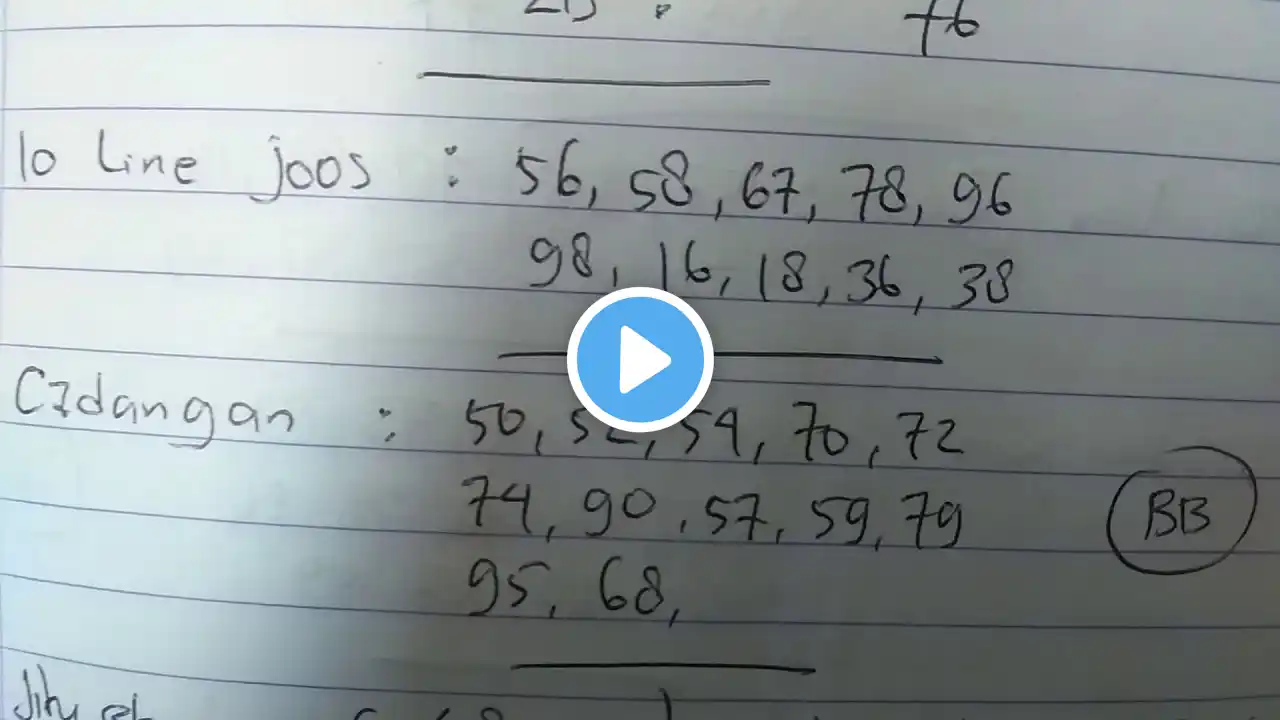 10 Line joos : 56, 58, 67, 78, 96
98, 16, 18, 36, 38
C7dangan : 50, 52, 54, 70, 72
74, 90, 57, 59, 79
BB
95, 68,